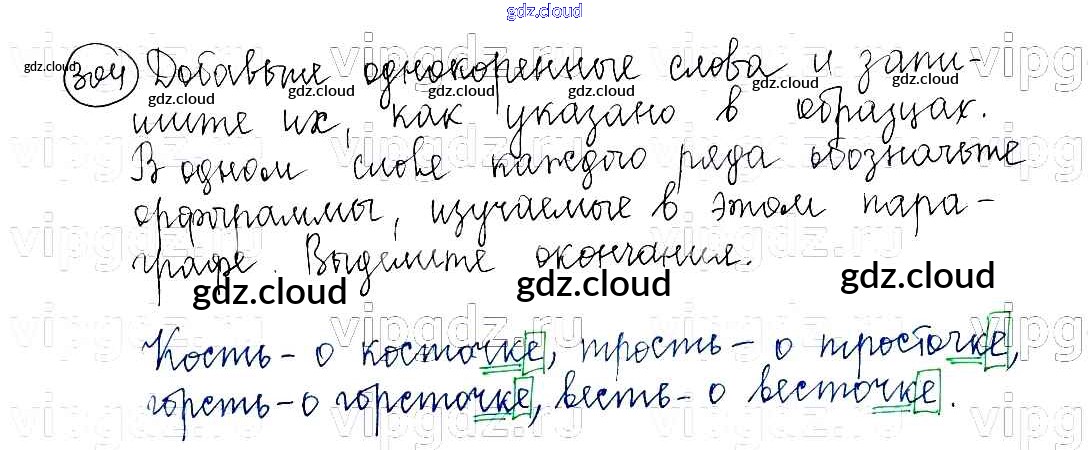 gdz.cloud
304 Добавьте однокоренные слова и запи-
шите их, как указано в образцах.
В одном слове каждого ряда обозначьте
орфограммы, изучаемые в этом пара-
графе. Выделите окончания.
gdz.cloud gdz.cloud gdz.cloud
Кость - о косточке, трость - о тросточке,
горсть - о горсточке, весть - о весточке.